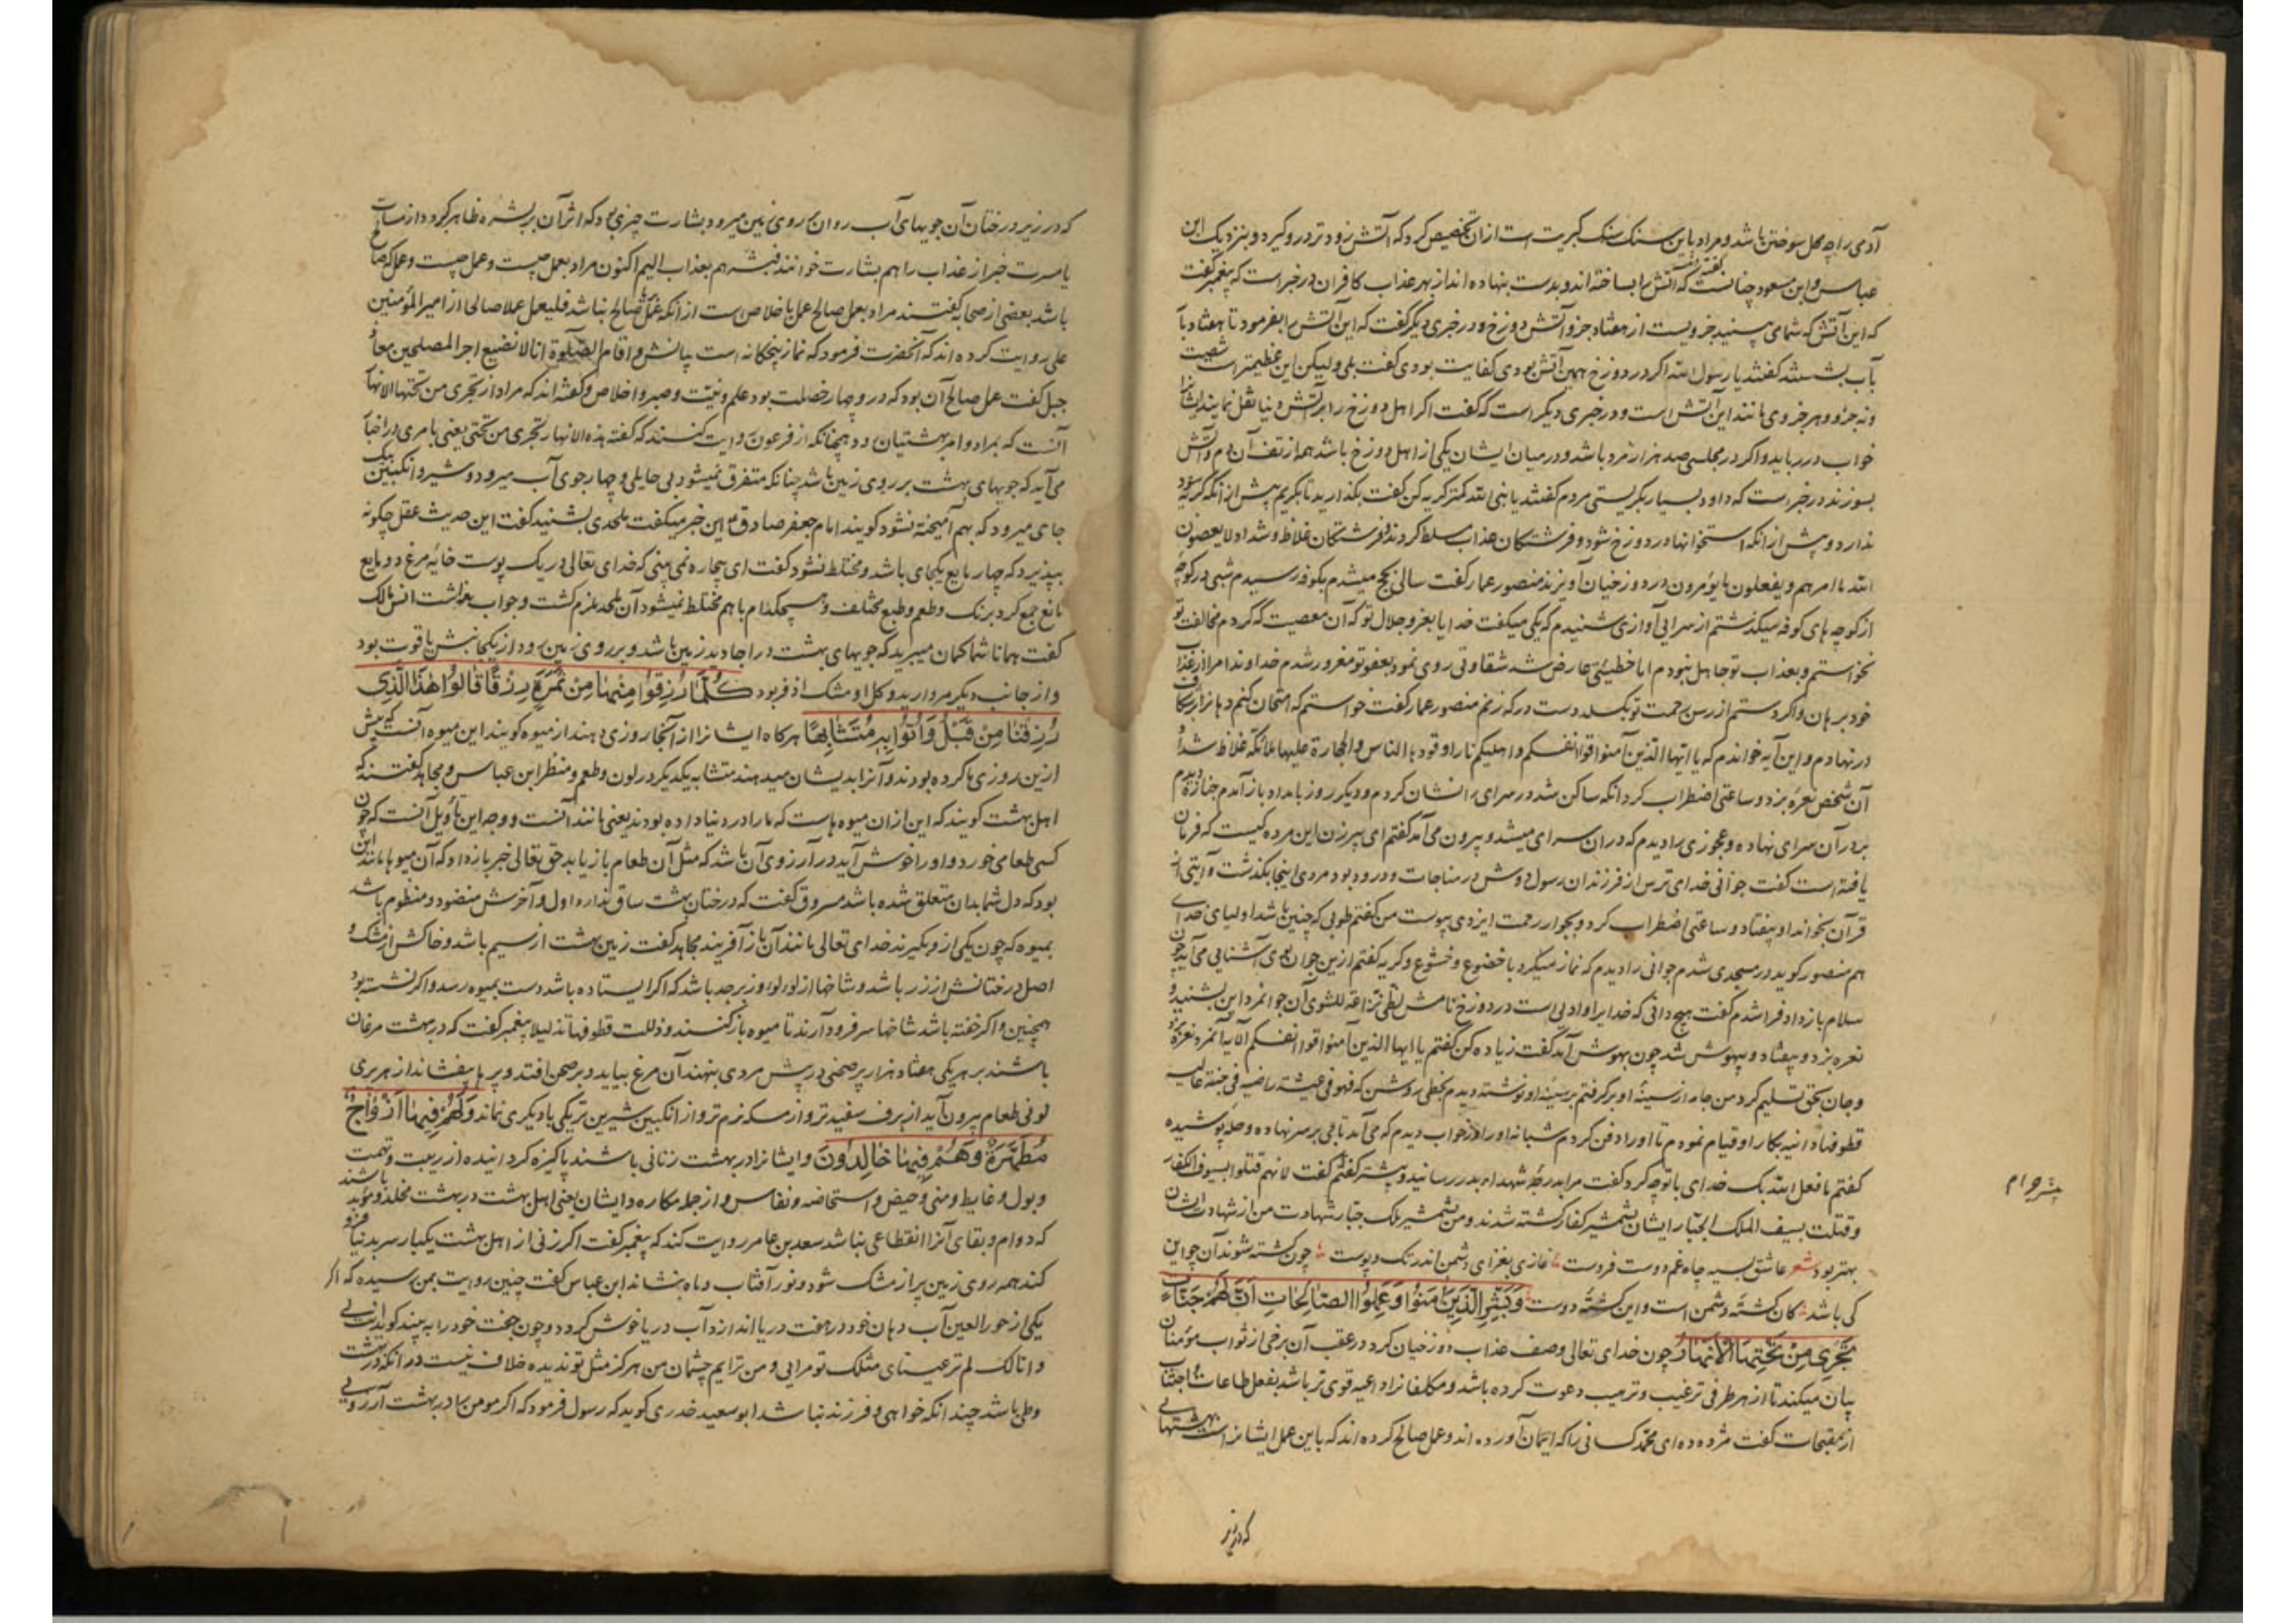 آدمی را چه محل سوختن باشد و مراد باین سنک سنک کبریت است ازان تخصیص کرد که آتش زودتر درو گیرد و بنزدیک ابن
عباس و ابن مسعود چنانست که آتش را بساخته‌اند و بدست بنهاده‌اند از بهر عذاب کافران در خبر است که پیغمبر گفت
که این آتش که شما می‌بینید جزویست از هفتاد جزو آتش دوزخ و در خبری دیگر گفت که این آتش را بفرمود تا هفتاد بار
بآب بشستند گفتند یا رسول الله اگر در دوزخ همین آتش بودی کفایت بودی گفت بلی ولیکن این عظیم‌تر است شصت
ونه جزو و هر جزوی مانند این آتش است و در خبری دیگر است که گفت اگر اهل دوزخ را بر آتش دنیا نقل نمایند ایشانرا
خواب در رباید و اگر در مجلسی صد هزار مرد باشد و در میان ایشان یکی از اهل دوزخ باشد همه از تف آن دم و آتش
بسوزند در خبر است که داود بسیار بگریستی مردم گفتند یا نبی الله کمتر گریه کن گفت بگذارید تا بگریم پیش ازانکه گریه سود
ندارد و پیش ازانکه استخوانها در دوزخ شود و فرشتگان عذاب مسلط گردند و فرشتگان غلاظ و شداد لا یعصون
الله ما امرهم و یفعلون ما یؤمرون در دوزخیان آویزند منصور عمار گفت سالی بحج میشدم بکوفه رسیدم شبی در کوچه
از کوچه‌های کوفه میگذشتم از سرایی آوازی شنیدم که یکی میگفت خدایا بعز و جلال تو که آن معصیت که کردم مخالفت تو
نخواستم و بعذاب تو جاهل نبودم اما خطیئتی عارض شد شقاوتی روی نمود بعفو تو مغرور شدم خداوندا مرا از عذاب
خود برهان و اگر دستم از رسن رحمت تو بکسلد دست در که زنم منصور عمار گفت خواستم که امتحان کنم دهانرا بر شکاف
در نهادم و این آیه خواندم که یا ایها الذین آمنوا قوا انفسکم و اهلیکم نارا وقودها الناس والحجارة علیها ملائکه غلاظ شداد
آن شخص نعره بزد و ساعتی اضطراب کرد انگه ساکن شد در سرای را نشان کردم و دیگر روز بامداد باز آمدم جنازه دیدم
بر در آن سرای نهاده و عجوزی را دیدم که دران سرای میشد و بیرون می‌آمد گفتم ای پیرزن این مرده کیست که فرمان
یافته است گفت جوانی خدای ترس از فرزندان رسول دوش در مناجات و ورد بود مردی اینجا بگذشت و آیتی از
قرآن بخواند او بیفتاد و ساعتی اضطراب کرد و بجوار رحمت ایزدی پیوست من گفتم طوبی که چنین باشد اولیای خدای
هم منصور گوید در مسجدی شدم جوانی را دیدم که نماز میکرد با خضوع و خشوع و گریه گفتم ازین جوان بوی آشنایی می‌آید چون
سلام باز داد فرا شدم گفت هیچ دانی که خدایرا وادئی است در دوزخ نامش لظی نزاعة للشوی آن جوانمرد این بشنید و
نعره بزد و بیفتاد و بیهوش شد چون بهوش آمد گفت زیاده کن گفتم یا ایها الذین آمنوا قوا انفسکم الآیه آنمرد نعره بزد
و جان بحق تسلیم کرد من جامه از سینهٔ او بر گرفتم بر سینه او نوشته دیدم بخطی روشن که فهو فی عیشة راضیه فی جنة عالیه
قطوفها دانیه بکار او قیام نمودم تا اورا دفن کردم شبانه اورا در خواب دیدم که می‌آمد تاجی بر سر نهاده و حله پوشیده
گفتم ما فعل الله بک خدای با تو چه کرد گفت مرا بدرجهٔ شهداء بدر رسانید و بیشتر گفتم گفت لانهم قتلوا بسیوف الکفار
و قتلت بسیف الملک الجبار ایشان بشمشیر کفار کشته شدند و من بشمشیر ملک جبار شهادت من از شهادت ایشان
بهتر بود شعر عاشق غم دوست فروست غازی بغزای دشمن اندر تک و پوست چون کشته شوند آن چو این
کی باشد کان کشتهٔ دشمن است و این کشتهٔ دوست وَبَشِّرِ الَّذِينَ آمَنُوا وَعَمِلُوا الصَّالِحَاتِ أَنَّ لَهُمْ جَنَّاتٍ
تَجْرِي مِنْ تَحْتِهَا الْأَنْهَارُ چون خدای تعالی وصف عذاب دوزخیان کرد در عقب آن برخی از ثواب مؤمنان
بیان میکند تا از هر طرفی ترغیب و ترهیب دعوت کرده باشد و مکلفانرا داعیه قوی‌تر باشد بفعل طاعات و اجتناب
از مقبحات گفت مژده ده ای محمد کسانی را که ایمان آورده‌اند و عمل صالح کرده‌اند که باین عمل ایشانراست بهشتهایی
که در زیر
که در زیر درختان آن جویهای آب روان بر روی زمین میرود بشارت چیزی بود که اثر آن بر بشره ظاهر گردد از مساءت
یا مسرت خبر از عذاب را هم بشارت خوانند فبشرهم بعذاب الیم اکنون مراد بعمل چیست و عمل چیست و عمل صالح
باشد بعضی از صحابه گفتند مراد بعمل صالح عمل باخلاص است ازانکه عمل بریا صالح نباشد فلیعمل عملا صالحا از امیر المؤمنین
علی روایت کرده‌اند که آنحضرت فرمود که نماز پنجگانه است بیانش و اقام الصلوة انا لا نضیع اجر المصلحین معاذ
جبل گفت عمل صالح آن بود که درو چهار خصلت بود علم و نیت و صبر و اخلاص و گفته‌اند که مراد از تجری من تحتها الانهار
آنست که بمراد و امر بهشتیان رود همچنانکه از فرعون روایت کنند که گفته هذه الانهار تجری من تحتی یعنی بامری در اخبار
می‌آید که جویهای بهشت بر روی زمین باشد چنانکه متفرق نمیشود بی حایلی و چهار جوی آب میرود و شیر و انگبین بیک
جای میرود که بهم آمیخته نشود گویند امام جعفر صادق این خبر میگفت ملحدی بشنید گفت این حدیث عقل چگونه
بپذیرد که چهار مایع یکجای باشد و مختلط نشود گفت ای بیچاره نمی‌بینی که خدای تعالی در یک پوست خایه مرغ دو مایع
مانع جمع کرد برنک و طعم و طبع مختلف و هیچکدام با هم مختلط نمیشود آن ملحد ملزم گشت و جواب نداشت انس مالک
گفت همانا شما گمان میبرید که جویهای بهشت در اجادید زمین باشد و بر روی زمین رود از یکجانبش یاقوت بود
و از جانب دیگر مروارید و گل او مشک اذفر بود كُلَّمَا رُزِقُوا مِنْهَا مِنْ ثَمَرَةٍ رِزْقًا قَالُوا هَٰذَا الَّذِي
رُزِقْنَا مِنْ قَبْلُ وَأُتُوا بِهِ مُتَشَابِهًا هرگاه ایشانرا از آنجا روزی دهند از میوه گویند این میوه آنست که پیش
ازین روزی ما کرده بودند و آنرا بدیشان میدهند متشابه یکدیگر در لون و طعم و منظر ابن عباس و مجاهد گفتند که
اهل بهشت گویند که این ازان میوه‌هاست که مارا در دنیا داده بودند یعنی مانند آنست و وجه این تأویل آنست که چون
کسی طعامی خورد و اورا خوش آید در آرزوی آن باشد که مثل آن طعام باز یابد حق تعالی خبر باز داد که آن میوها مانند این
بود که دل شما بدان متعلق شده باشد مسروق گفت که درختان بهشت ساق ندارد اول و آخرش منضود و منظوم باشد
بمیوه که چون یکی ازو بگیرند خدای تعالی مانند آن باز آفریند مجاهد گفت زمین بهشت از سیم باشد و خاکش از مشک و
اصل درختانش از زر باشد و شاخها از لولو و زبرجد باشد که اگر ایستاده باشد دست بمیوه رسد و اگر نشسته بود
همچنین و اگر خفته باشد شاخها سر فرود آرند تا میوه باز کنند و ذللت قطوفها تذلیلا پیغمبر گفت که در بهشت مرغان
باشند بر هر یکی هفتاد هزار پر صحنی در پیش مردی بنهند آن مرغ بیاید و بر صحن افتد و پرها بیفشاند از هر پری
لونی طعام بیرون آید از برف سفیدتر و از مسکه نرم‌تر و از انگبین شیرین‌تر یکی با دیگری نماند وَلَهُمْ فِيهَا أَزْوَاجٌ
مُطَهَّرَةٌ وَهُمْ فِيهَا خَالِدُونَ و ایشانرا در بهشت زنانی باشند پاکیزه گردانیده از ریبت و تهمت
و بول و غایط و منی و حیض و استحاضه و نفاس و از جمله مکاره و ایشان یعنی اهل بهشت در بهشت مخلد و مؤبد باشند
که دوام و بقای آنرا انقطاعی نباشد سعد بن عامر روایت کند که پیغمبر گفت اگر زنی از اهل بهشت یکبار سر بدنیا فرو
کند همه روی زمین پر از مشک شود و نور آفتاب و ماه بنشاند ابن عباس گفت چنین روایت بمن رسیده که اگر
یکی از حور العین آب دهان خود در هفت دریا اندازد آب دریا خوش گردد و چون جفت خود را به بیند گوید
و انا لک لم تر عینای مثلک تو مرایی و من ترایم چشمان من هرگز مثل تو ندیده خلاف نیست در انکه در بهشت
وطی باشد چندانکه خواهی و فرزند نباشد ابو سعید خدری گوید که رسول فرمود که اگر مومن را در بهشت آرزویی